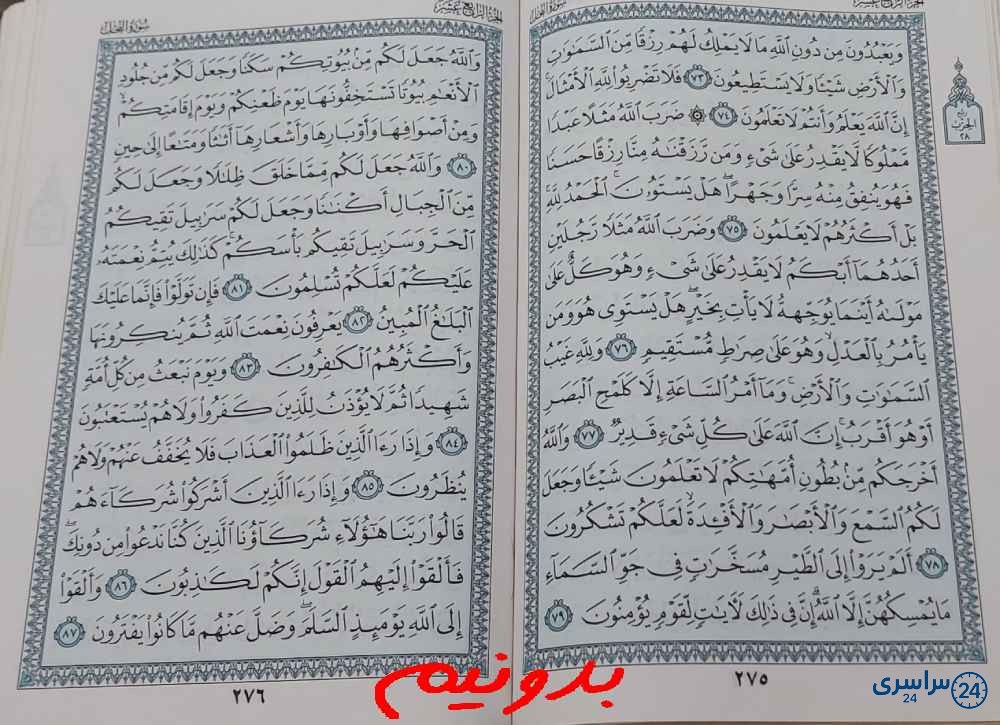 الجزء الرابع عشر
سورة النحل
وَيَعْبُدُونَ مِن دُونِ اللَّهِ مَا لَا يَمْلِكُ لَهُمْ رِزْقًا مِّنَ السَّمَاوَاتِ
وَالْأَرْضِ شَيْئًا وَلَا يَسْتَطِيعُونَ ٧٣ فَلَا تَضْرِبُوا لِلَّهِ الْأَمْثَالَ
إِنَّ اللَّهَ يَعْلَمُ وَأَنتُمْ لَا تَعْلَمُونَ ٧٤ ۞ ضَرَبَ اللَّهُ مَثَلًا عَبْدًا
مَّمْلُوكًا لَّا يَقْدِرُ عَلَىٰ شَيْءٍ وَمَن رَّزَقْنَاهُ مِنَّا رِزْقًا حَسَنًا
فَهُوَ يُنفِقُ مِنْهُ سِرًّا وَجَهْرًا ۖ هَلْ يَسْتَوُونَ ۚ الْحَمْدُ لِلَّهِ
بَلْ أَكْثَرُهُمْ لَا يَعْلَمُونَ ٧٥ وَضَرَبَ اللَّهُ مَثَلًا رَّجُلَيْنِ
أَحَدُهُمَا أَبْكَمُ لَا يَقْدِرُ عَلَىٰ شَيْءٍ وَهُوَ كَلٌّ عَلَىٰ
مَوْلَاهُ أَيْنَمَا يُوَجِّههُّ لَا يَأْتِ بِخَيْرٍ ۖ هَلْ يَسْتَوِي هُوَ وَمَن
يَأْمُرُ بِالْعَدْلِ ۙ وَهُوَ عَلَىٰ صِرَاطٍ مُّسْتَقِيمٍ ٧٦ وَلِلَّهِ غَيْبُ
السَّمَاوَاتِ وَالْأَرْضِ ۚ وَمَا أَمْرُ السَّاعَةِ إِلَّا كَلَمْحِ الْبَصَرِ
أَوْ هُوَ أَقْرَبُ ۚ إِنَّ اللَّهَ عَلَىٰ كُلِّ شَيْءٍ قَدِيرٌ ٧٧ وَاللَّهُ
أَخْرَجَكُم مِّن بُطُونِ أُمَّهَاتِكُمْ لَا تَعْلَمُونَ شَيْئًا وَجَعَلَ
لَكُمُ السَّمْعَ وَالْأَبْصَارَ وَالْأَفْئِدَةَ ۙ لَعَلَّكُمْ تَشْكُرُونَ
٧٨ أَلَمْ يَرَوْا إِلَى الطَّيْرِ مُسَخَّرَاتٍ فِي جَوِّ السَّمَاءِ
مَا يُمْسِكُهُنَّ إِلَّا اللَّهُ ۗ إِنَّ فِي ذَٰلِكَ لَآيَاتٍ لِّقَوْمٍ يُؤْمِنُونَ ٧٩
٢٧٥
ربع
الحزب
٢٨
الجزء الرابع عشر
سورة النحل
وَاللَّهُ جَعَلَ لَكُم مِّن بُيُوتِكُمْ سَكَنًا وَجَعَلَ لَكُم مِّن جُلُودِ
الْأَنْعَامِ بُيُوتًا تَسْتَخِفُّونَهَا يَوْمَ ظَعْنِكُمْ وَيَوْمَ إِقَامَتِكُمْ ۙ
وَمِنْ أَصْوَافِهَا وَأَوْبَارِهَا وَأَشْعَارِهَا أَثَاثًا وَمَتَاعًا إِلَىٰ حِينٍ
٨٠ وَاللَّهُ جَعَلَ لَكُم مِّمَّا خَلَقَ ظِلَالًا وَجَعَلَ لَكُم
مِّنَ الْجِبَالِ أَكْنَانًا وَجَعَلَ لَكُمْ سَرَابِيلَ تَقِيكُمُ
الْحَرَّ وَسَرَابِيلَ تَقِيكُم بَأْسَكُمْ ۚ كَذَٰلِكَ يُتِمُّ نِعْمَتَهُ
عَلَيْكُمْ لَعَلَّكُمْ تُسْلِمُونَ ٨١ فَإِن تَوَلَّوْا فَإِنَّمَا عَلَيْكَ
الْبَلَاغُ الْمُبِينُ ٨٢ يَعْرِفُونَ نِعْمَتَ اللَّهِ ثُمَّ يُنكِرُونَهَا
وَأَكْثَرُهُمُ الْكَافِرُونَ ٨٣ وَيَوْمَ نَبْعَثُ مِن كُلِّ أُمَّةٍ
شَهِيدًا ثُمَّ لَا يُؤْذَنُ لِلَّذِينَ كَفَرُوا وَلَا هُمْ يُسْتَعْتَبُونَ
٨٤ وَإِذَا رَأَى الَّذِينَ ظَلَمُوا الْعَذَابَ فَلَا يُخَفَّفُ عَنْهُمْ وَلَا هُمْ
يُنظَرُونَ ٨٥ وَإِذَا رَأَى الَّذِينَ أَشْرَكُوا شُرَكَاءَهُمْ
قَالُوا رَبَّنَا هَٰؤُلَاءِ شُرَكَاؤُنَا الَّذِينَ كُنَّا نَدْعُو مِن دُونِكَ ۖ
فَأَلْقَوْا إِلَيْهِمُ الْقَوْلَ إِنَّكُمْ لَكَاذِبُونَ ٨٦ وَأَلْقَوْا
إِلَى اللَّهِ يَوْمَئِذٍ السَّلَمَ ۖ وَضَلَّ عَنْهُم مَّا كَانُوا يَفْتَرُونَ ٨٧
٢٧٦
بدونیم
سراسری
24
24